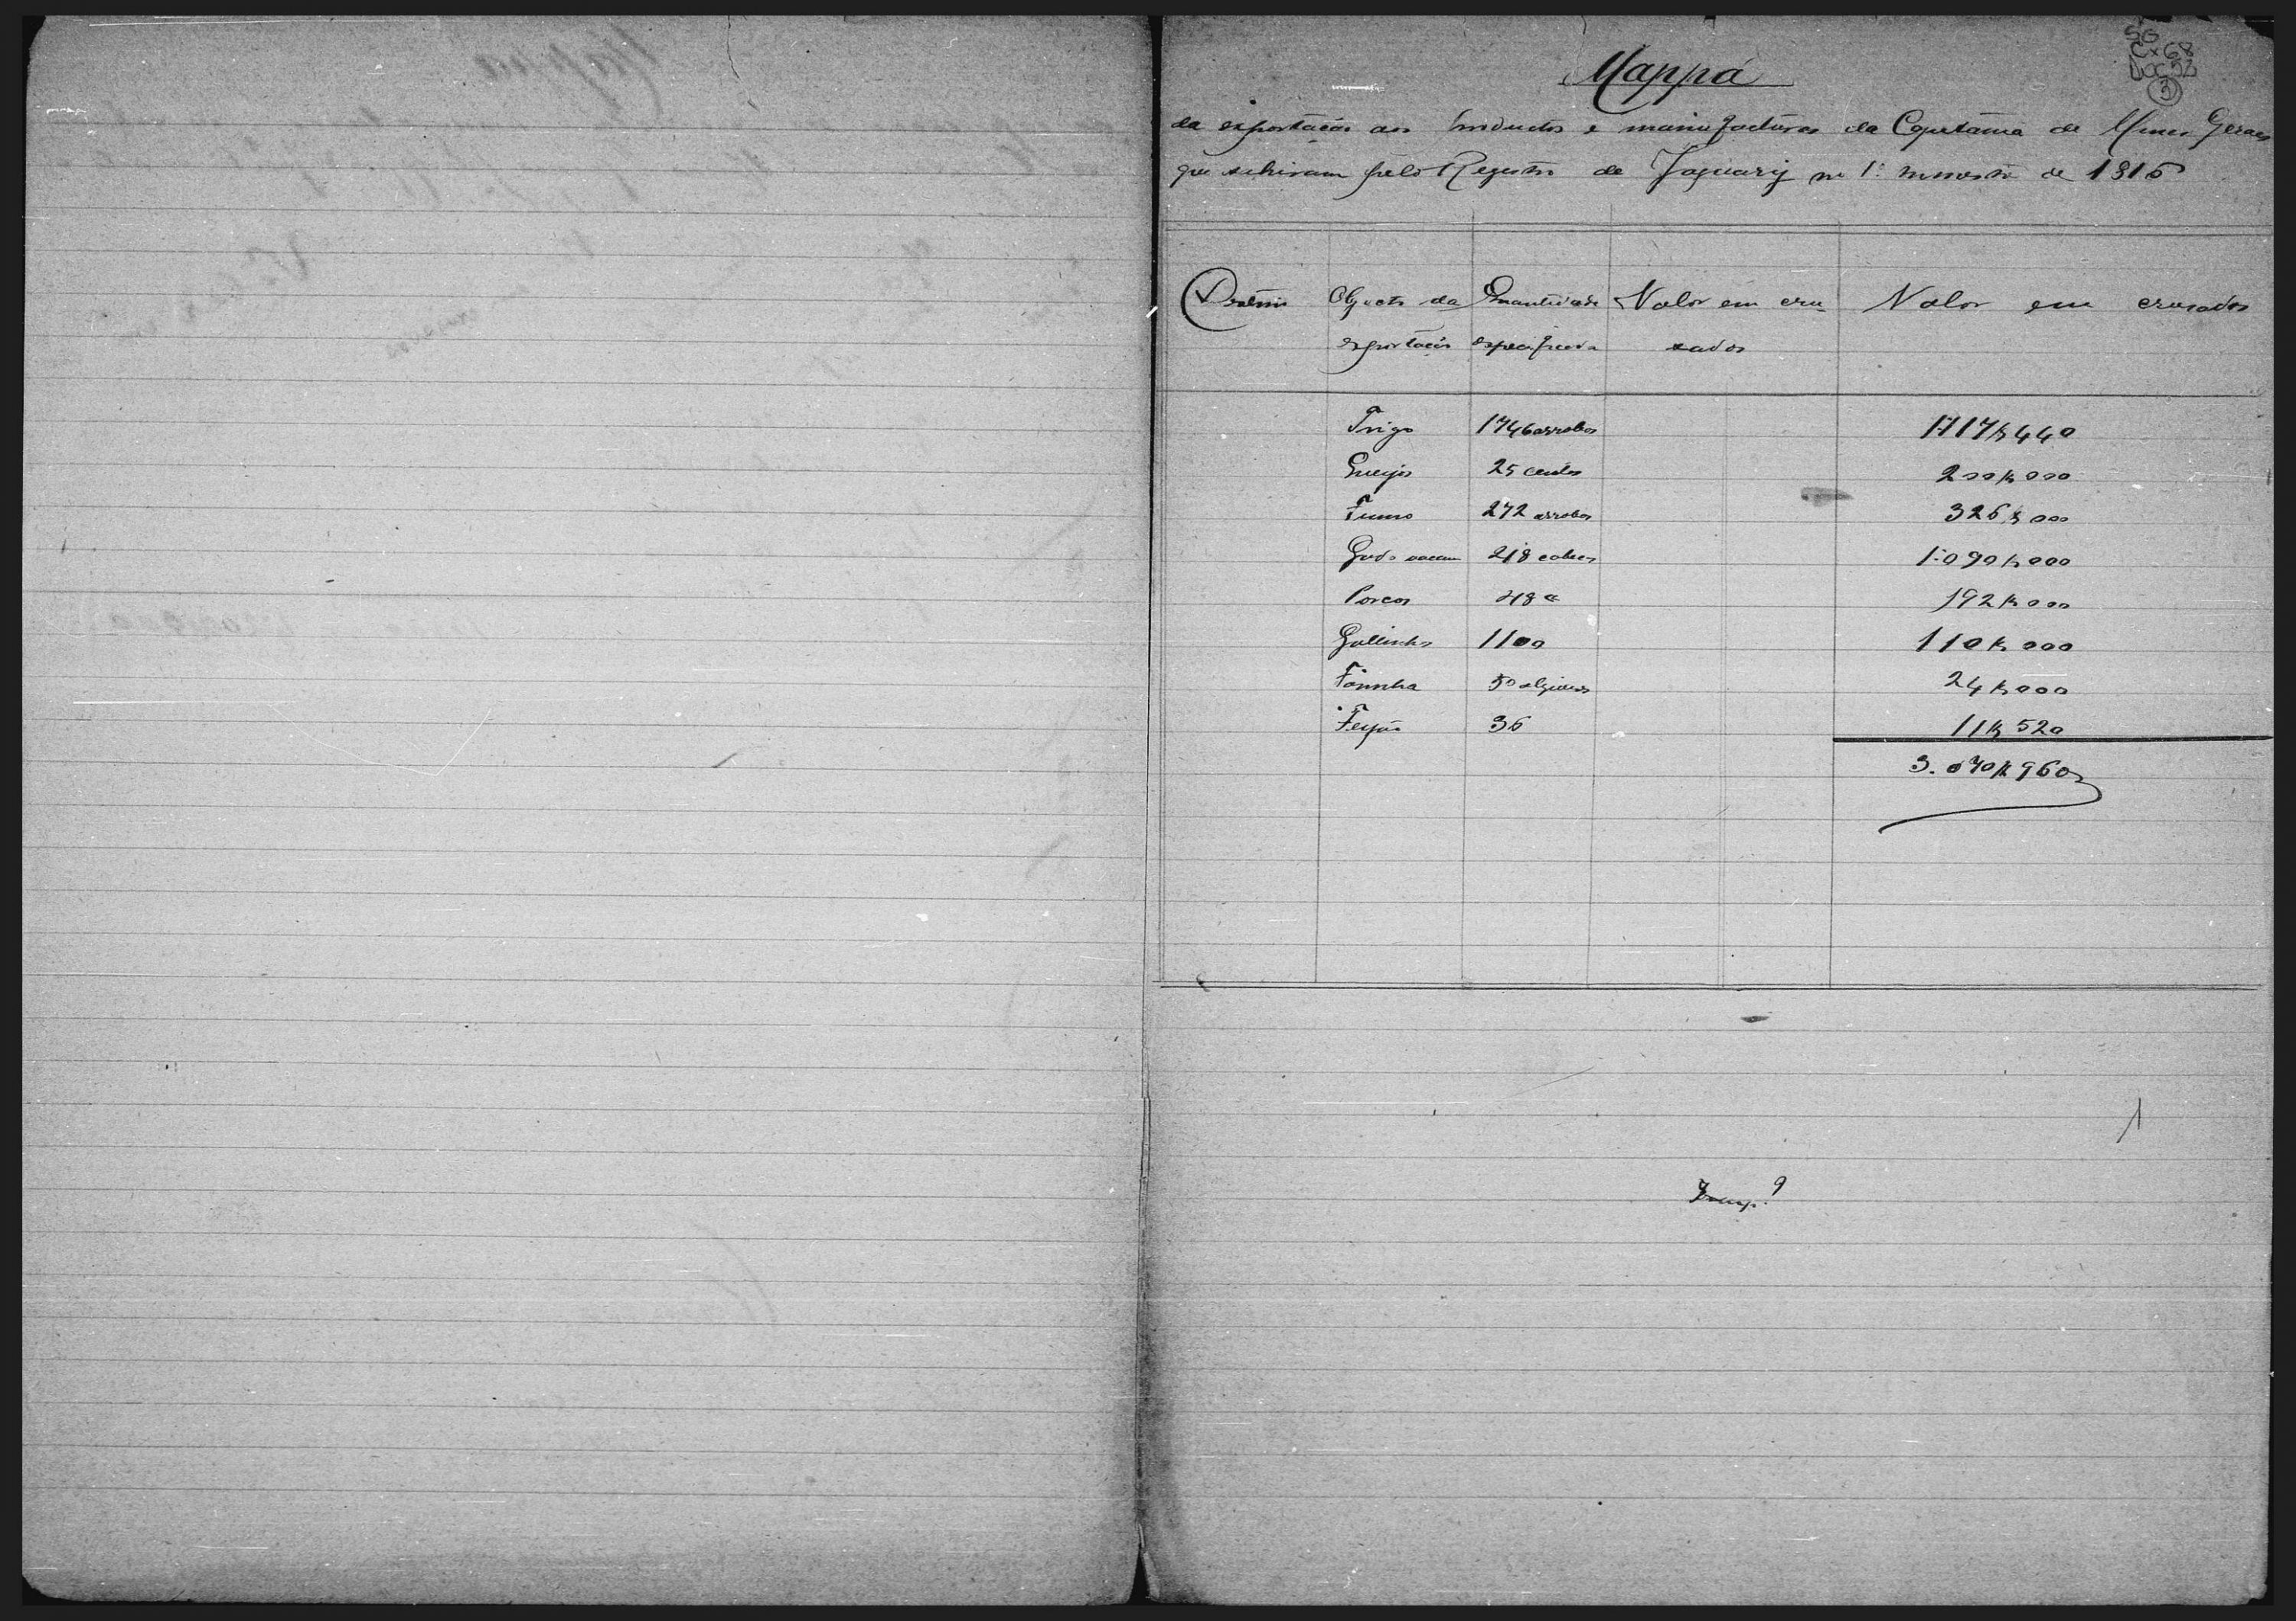 SG
Cx 68
Doc 52
3
Mappa
da exportação dos productos e manufacturas da Capitania de Minas Geraes
que sahiram pelo Registro de Jaguary no 1º semestre de 1816
Objecto da exportação Quantidade especificada Valor em cruzados Valor em cruzados
Trigo 1746 arrobas 1:117$440
Queijos 25 centos 200$000
Fumo 272 arrobas 326$000
Gado vaccum 218 cabeças 1:090$000
Porcos 48 " 192$000
Gallinhas 1100 110$000
Farinha 50 alqueires 24$000
Feijão 36 11$520
3.070$960
1